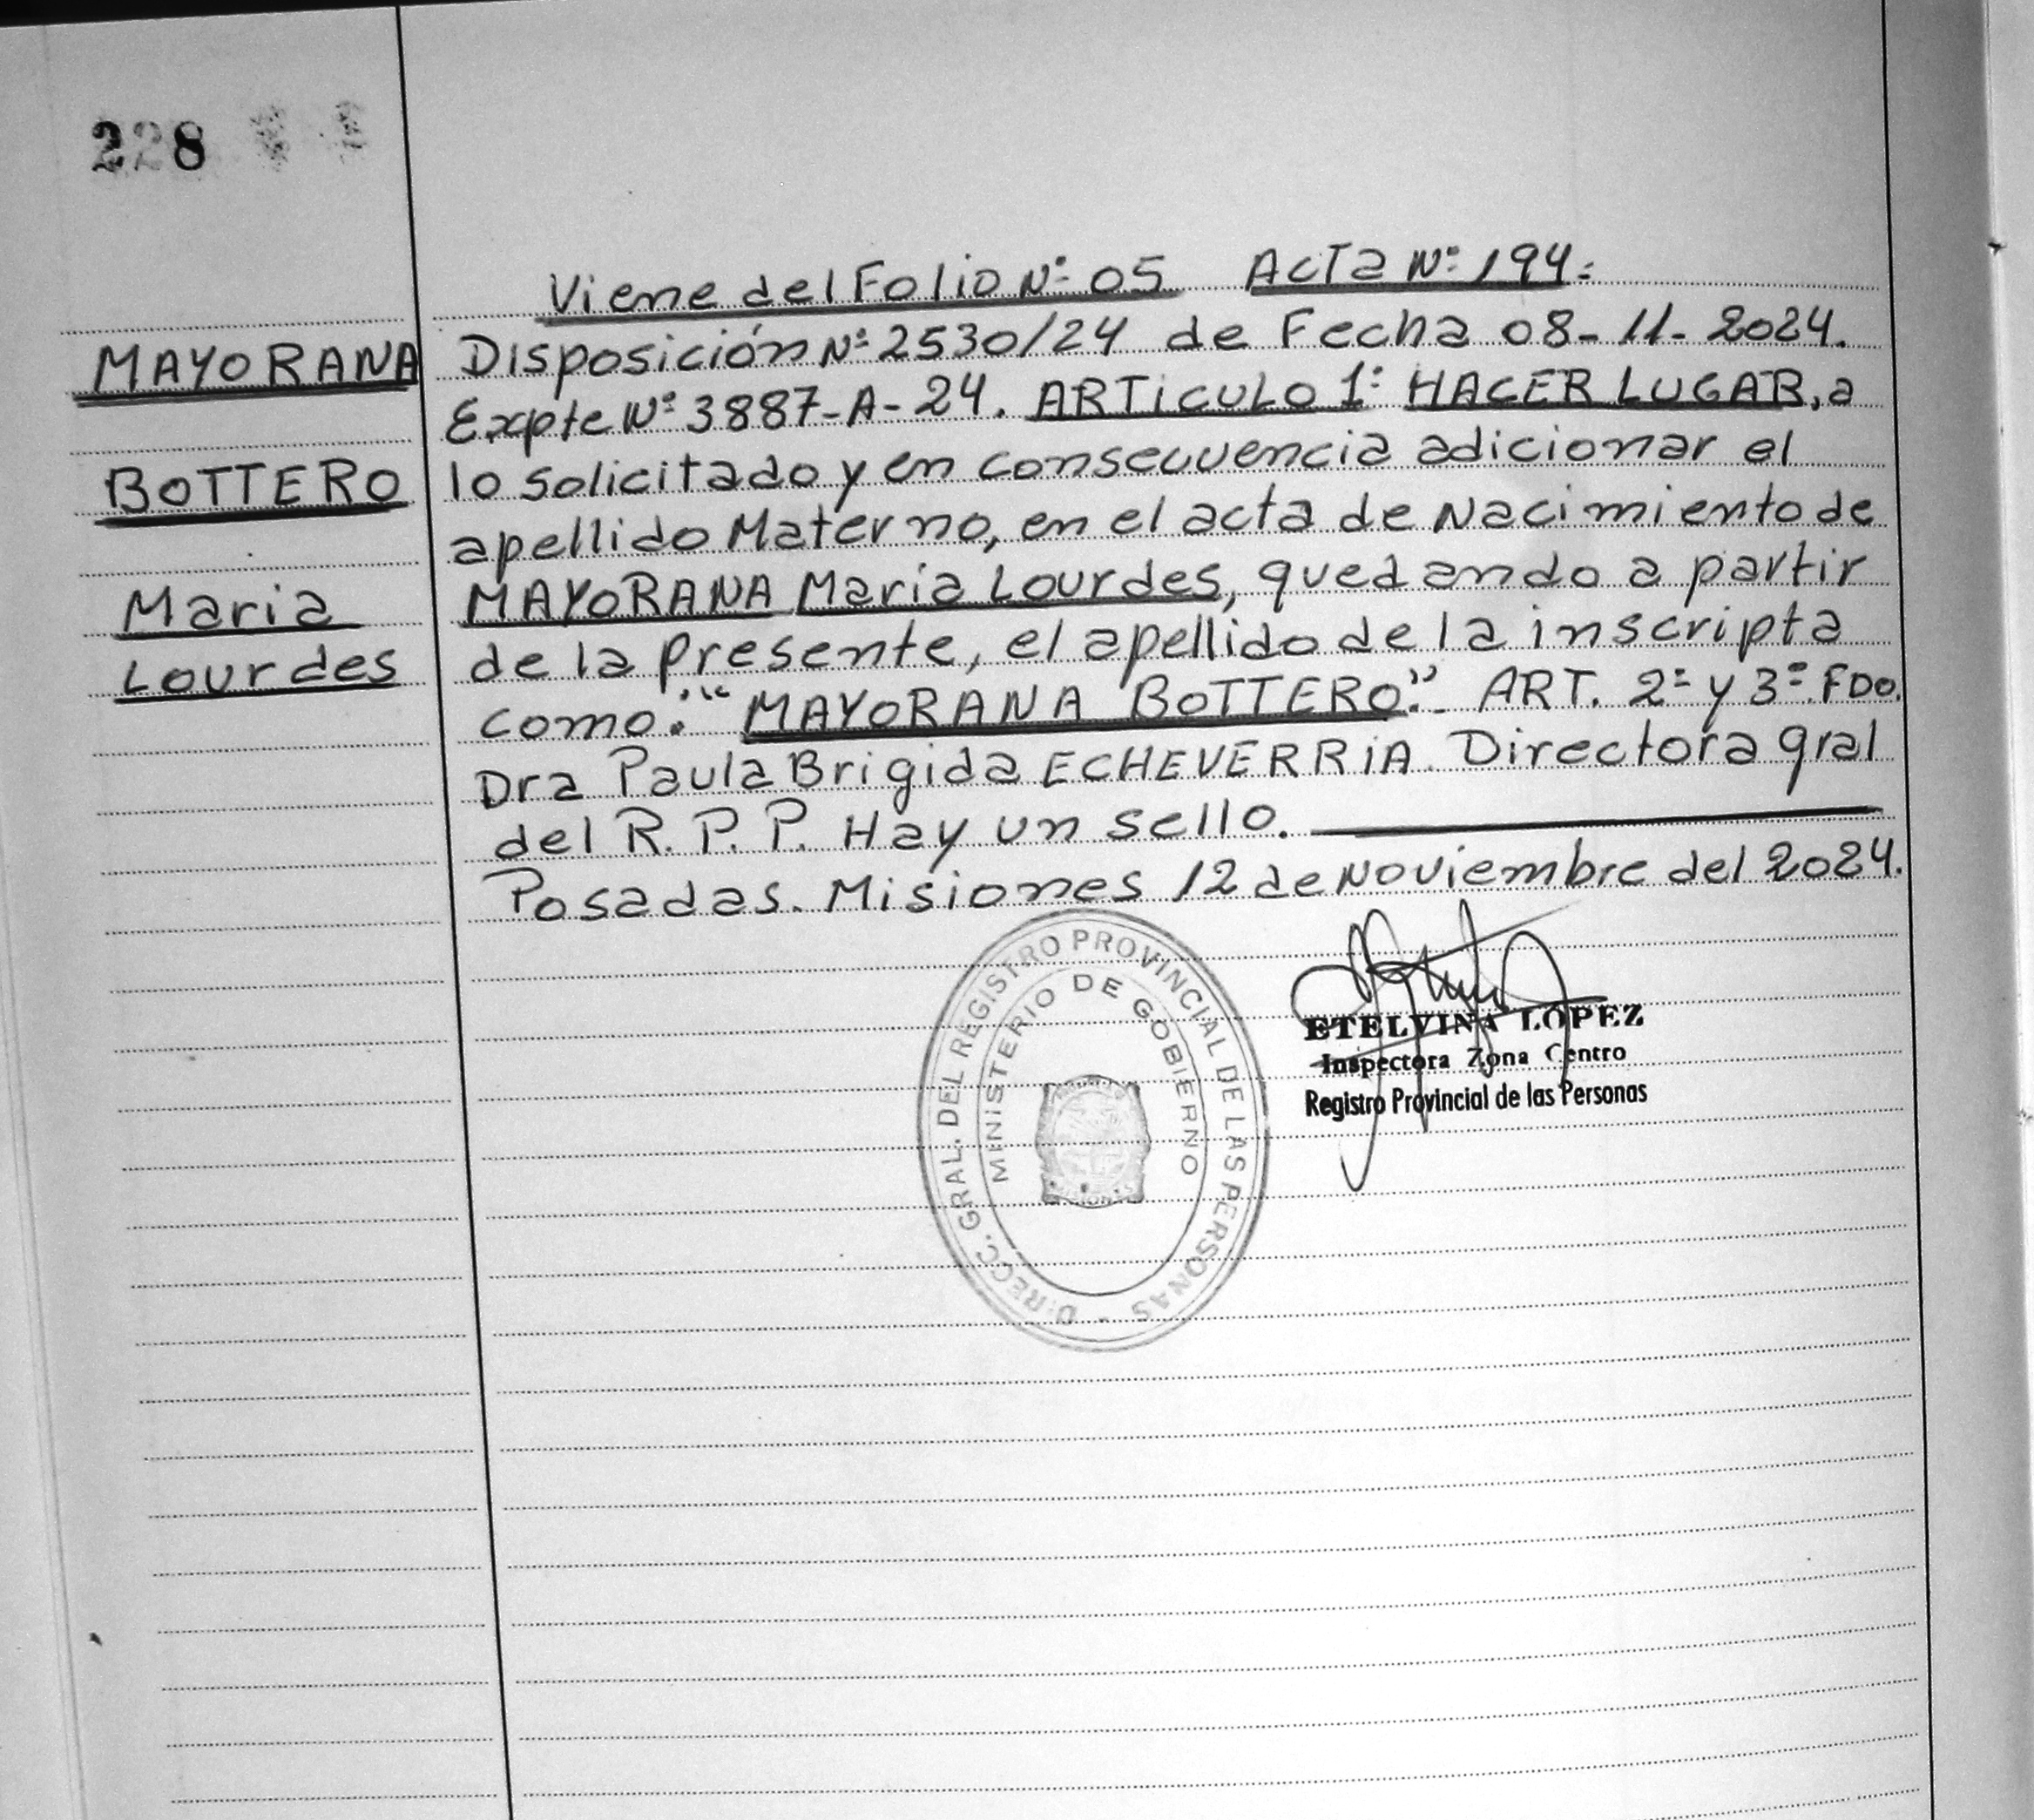 228
MAYORANA
BOTTERO
Maria
Lourdes
Viene del Folio Nº 05 ACTA Nº 194:
Disposición Nº 2530/24 de Fecha 08-11-2024.
Expte Nº 3887-A-24. ARTICULO 1º HACER LUGAR, a
lo solicitado y en consecuencia adicionar el
apellido Materno, en el acta de Nacimiento de
MAYORANA Maria Lourdes, quedando a partir
de la presente, el apellido de la inscripta
como: "MAYORANA BOTTERO". ART. 2º y 3º. FDO.
Dra Paula Brigida ECHEVERRIA. Directora gral
del R. P. P. Hay un sello.
Posadas. Misiones 12 de Noviembre del 2024.
DIRECC. GRAL. DEL REGISTRO PROVINCIAL DE LAS PERSONAS -
MINISTERIO DE GOBIERNO
MISIONES
ETELVINA LOPEZ
Inspectora Zona Centro
Registro Provincial de las Personas